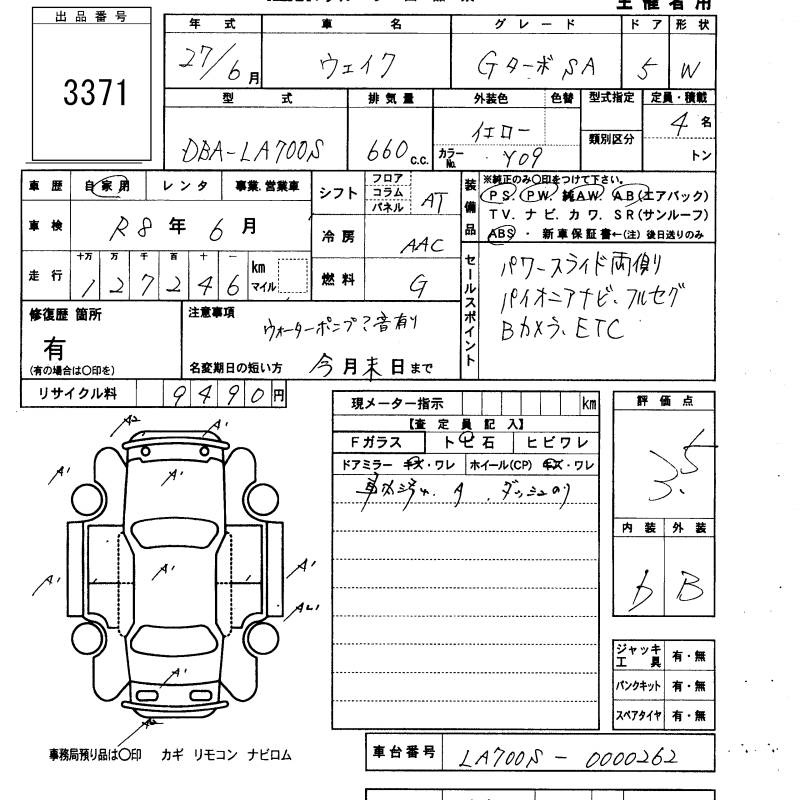 主催者用
出品番号
3371
年式 車名 グレード ドア 形状
27/6月 ウェイク GターボSA 5 W
型式 排気量 外装色 色替 型式指定 定員・積載
DBA-LA700S 660c.c. イエロー 類別区分 4名
カラーNo. Y09 トン
車歴 自家用 レンタ 事業、営業車
車検 R8年6月
走行 十万 万 千 百 十 一
127246 km マイル
シフト フロア コラム パネル AT
冷房 AAC
燃料 G
装備品 ※純正のみ○印をつけて下さい。
PS. PW. 純AW. AB(エアバック)
TV. ナビ. カワ. SR(サンルーフ)
ABS ・ 新車保証書←(注) 後日送りのみ
セールスポイント
パワースライド両側り
パイオニアナビ、フルセグ
Bカメラ、ETC
修復歴 箇所
有
(有の場合は○印を)
注意事項
ウォーターポンプ?音有り
名変期日の短い方 今月末日まで
リサイクル料 9490円
現メーター指示 km
【査定員記入】
Fガラス トビ石 ヒビワレ
ドアミラー キズ・ワレ ホイール(CP) キズ・ワレ
A ダッシュのり
評価点
3.5
内装 外装
b B
A2 A1
A1 A1
A1 A1 A1
A1
ジャッキ工具 有・無
パンクキット 有・無
スペアタイヤ 有・無
事務局預り品は○印 カギ リモコン ナビロム
車台番号 LA700S-0000262